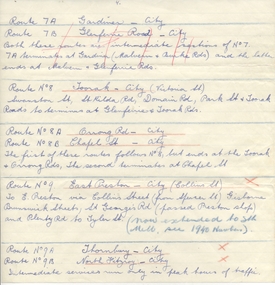 Route 7A Gardiner – City
Route 7B Glenferrie Road – City
Both these routes are intermediate portions of No 7.
7A terminates at Gardiner (Malvern & Burke Rds) and the latter
ends at Malvern & Glenferrie Rds.
Route No 8 Toorak – City (Victoria St)
Swanston St, St Kilda Rd, Domain Rd, Park St & Toorak
Roads to terminus at Glenferrie & Toorak Rds.
Route No 8A Orrong Rd – City
Route No 8B Chapel St – City
The first of these routes follows No 8, but ends at the Toorak
& Orrong Rds. The second terminates at Chapel St
Route No 9 East Preston – City (Collins St)
To E Preston via Collins Street (from Spencer St) Gisborne
Brunswick Street, St Georges Rd (passed Preston shop)
and Plenty Rd to Tyler St (now extended to
Route No 9A Thornbury – City
Route No 9B North Fitzroy – City
Intermediate services run only in peak hours of traffic